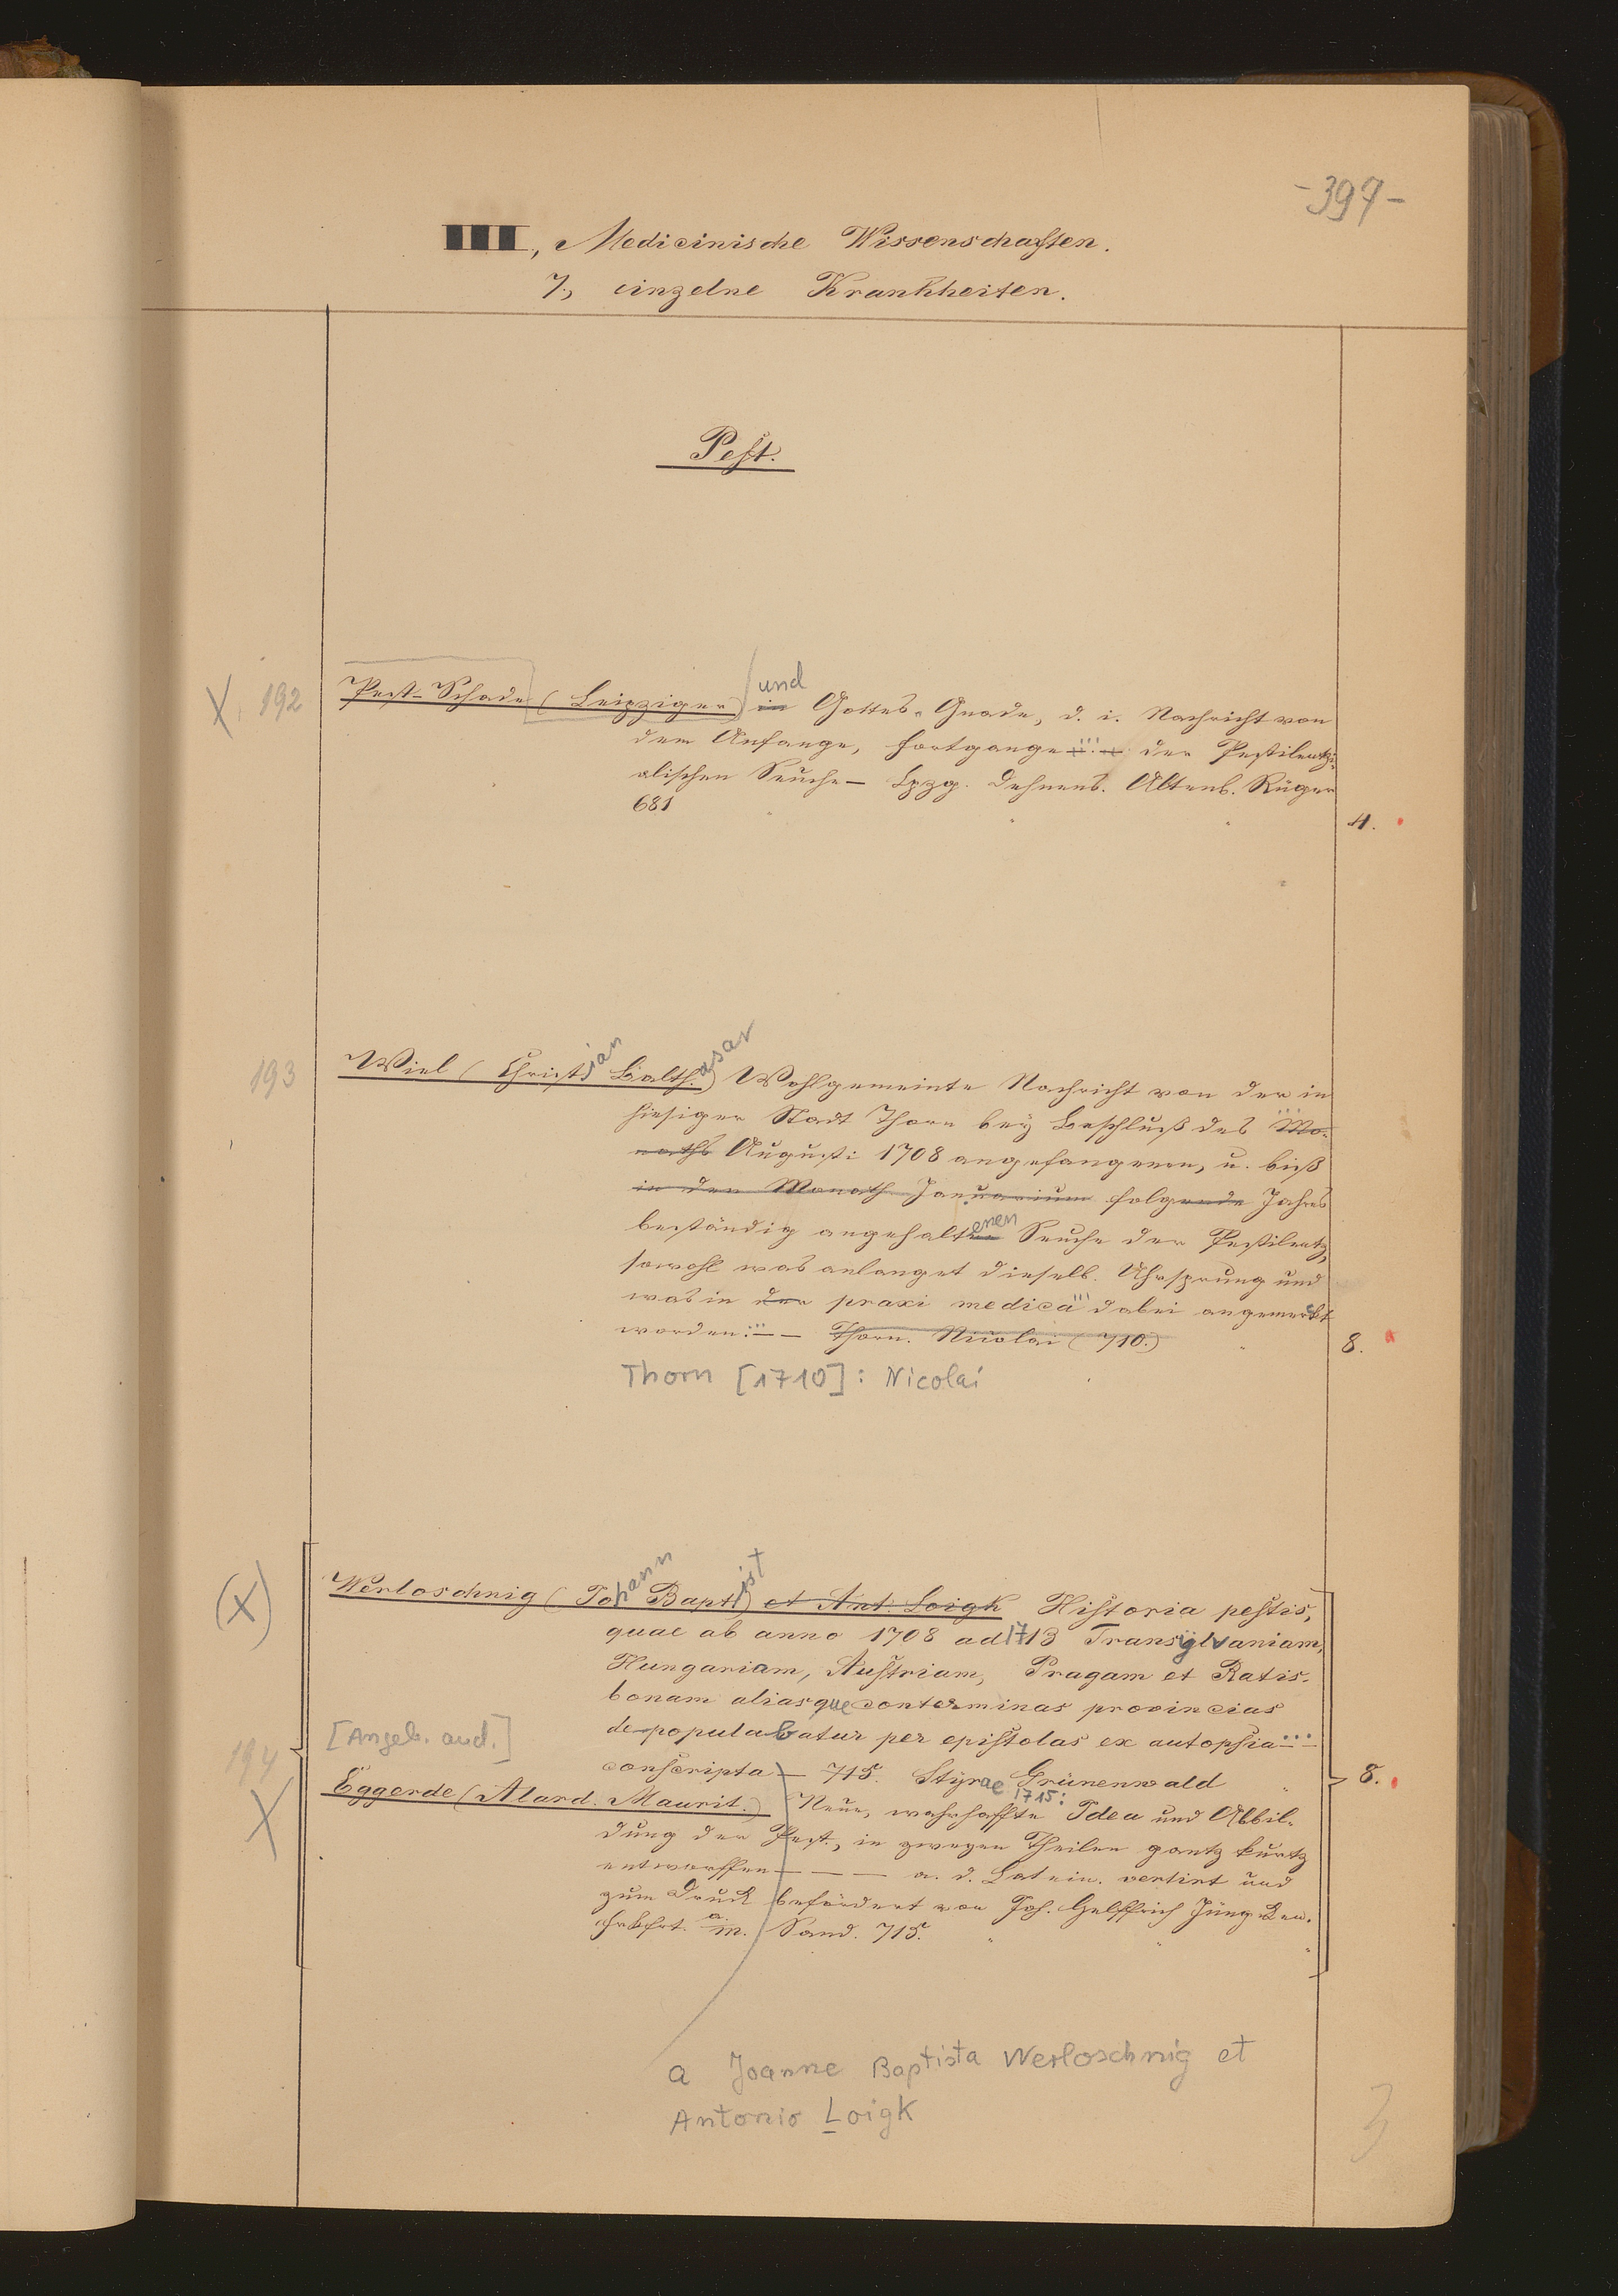 -397-
III, Medicinische Wissenschaften.
7, einzelne Krankheiten.
Pest.
X. 192 Pest-Schade (Leipziger) in und Gottes-Gnade, d. i. Nachricht von
dem Anfange, Fortgange ... der Pestilentzi-
alischen Seuche — Lpzg. Dehnens. Altenb. Rüger
681 4.
193 Wiel (Christian Balth.asar) Wohlgemeinte Nachricht von der in
hiesiger Stadt Thorn bey Beschluß des ... Mo-
naths Augusti 1708 angefangenen, u. biß
in den Monath Januarium folgende Jahres
beständig angehaltenen Seuche der Pestilentz,
sowohl was anlanget dieselb. Uhrsprung und
was in der praxi medica ... dabei angemerkt
worden: — Thorn. Nicolai (710.) 8.
Thorn [1710]: Nicolai
(X) Werloschnig (Johann Baptist) et Ant. Loigk Historia pestis,
quae ab anno 1708 ad 1713 Transylvaniam,
Hungariam, Austriam, Pragam et Ratis-
bonam aliasque conterminas provincias
depopulabatur per epistolas ex autopsia ...
194 [Angeb. and.] conscripta — 715. Styrae Grünenwald 8.
1715:
X Eggerde (Alard. Maurit.) Neue, wahrhaffte Idea und Abbil-
dung der Pest, in zweyen Theilen gantz kurtz
entworffen — — — a. d. Latein. vertirt und
zum Druck befördert von Joh. Helffrich Jüngken.
Frkfrt. a. m. Sand. 715.
a Joanne Baptista Werloschnig et
Antonio Loigk
3